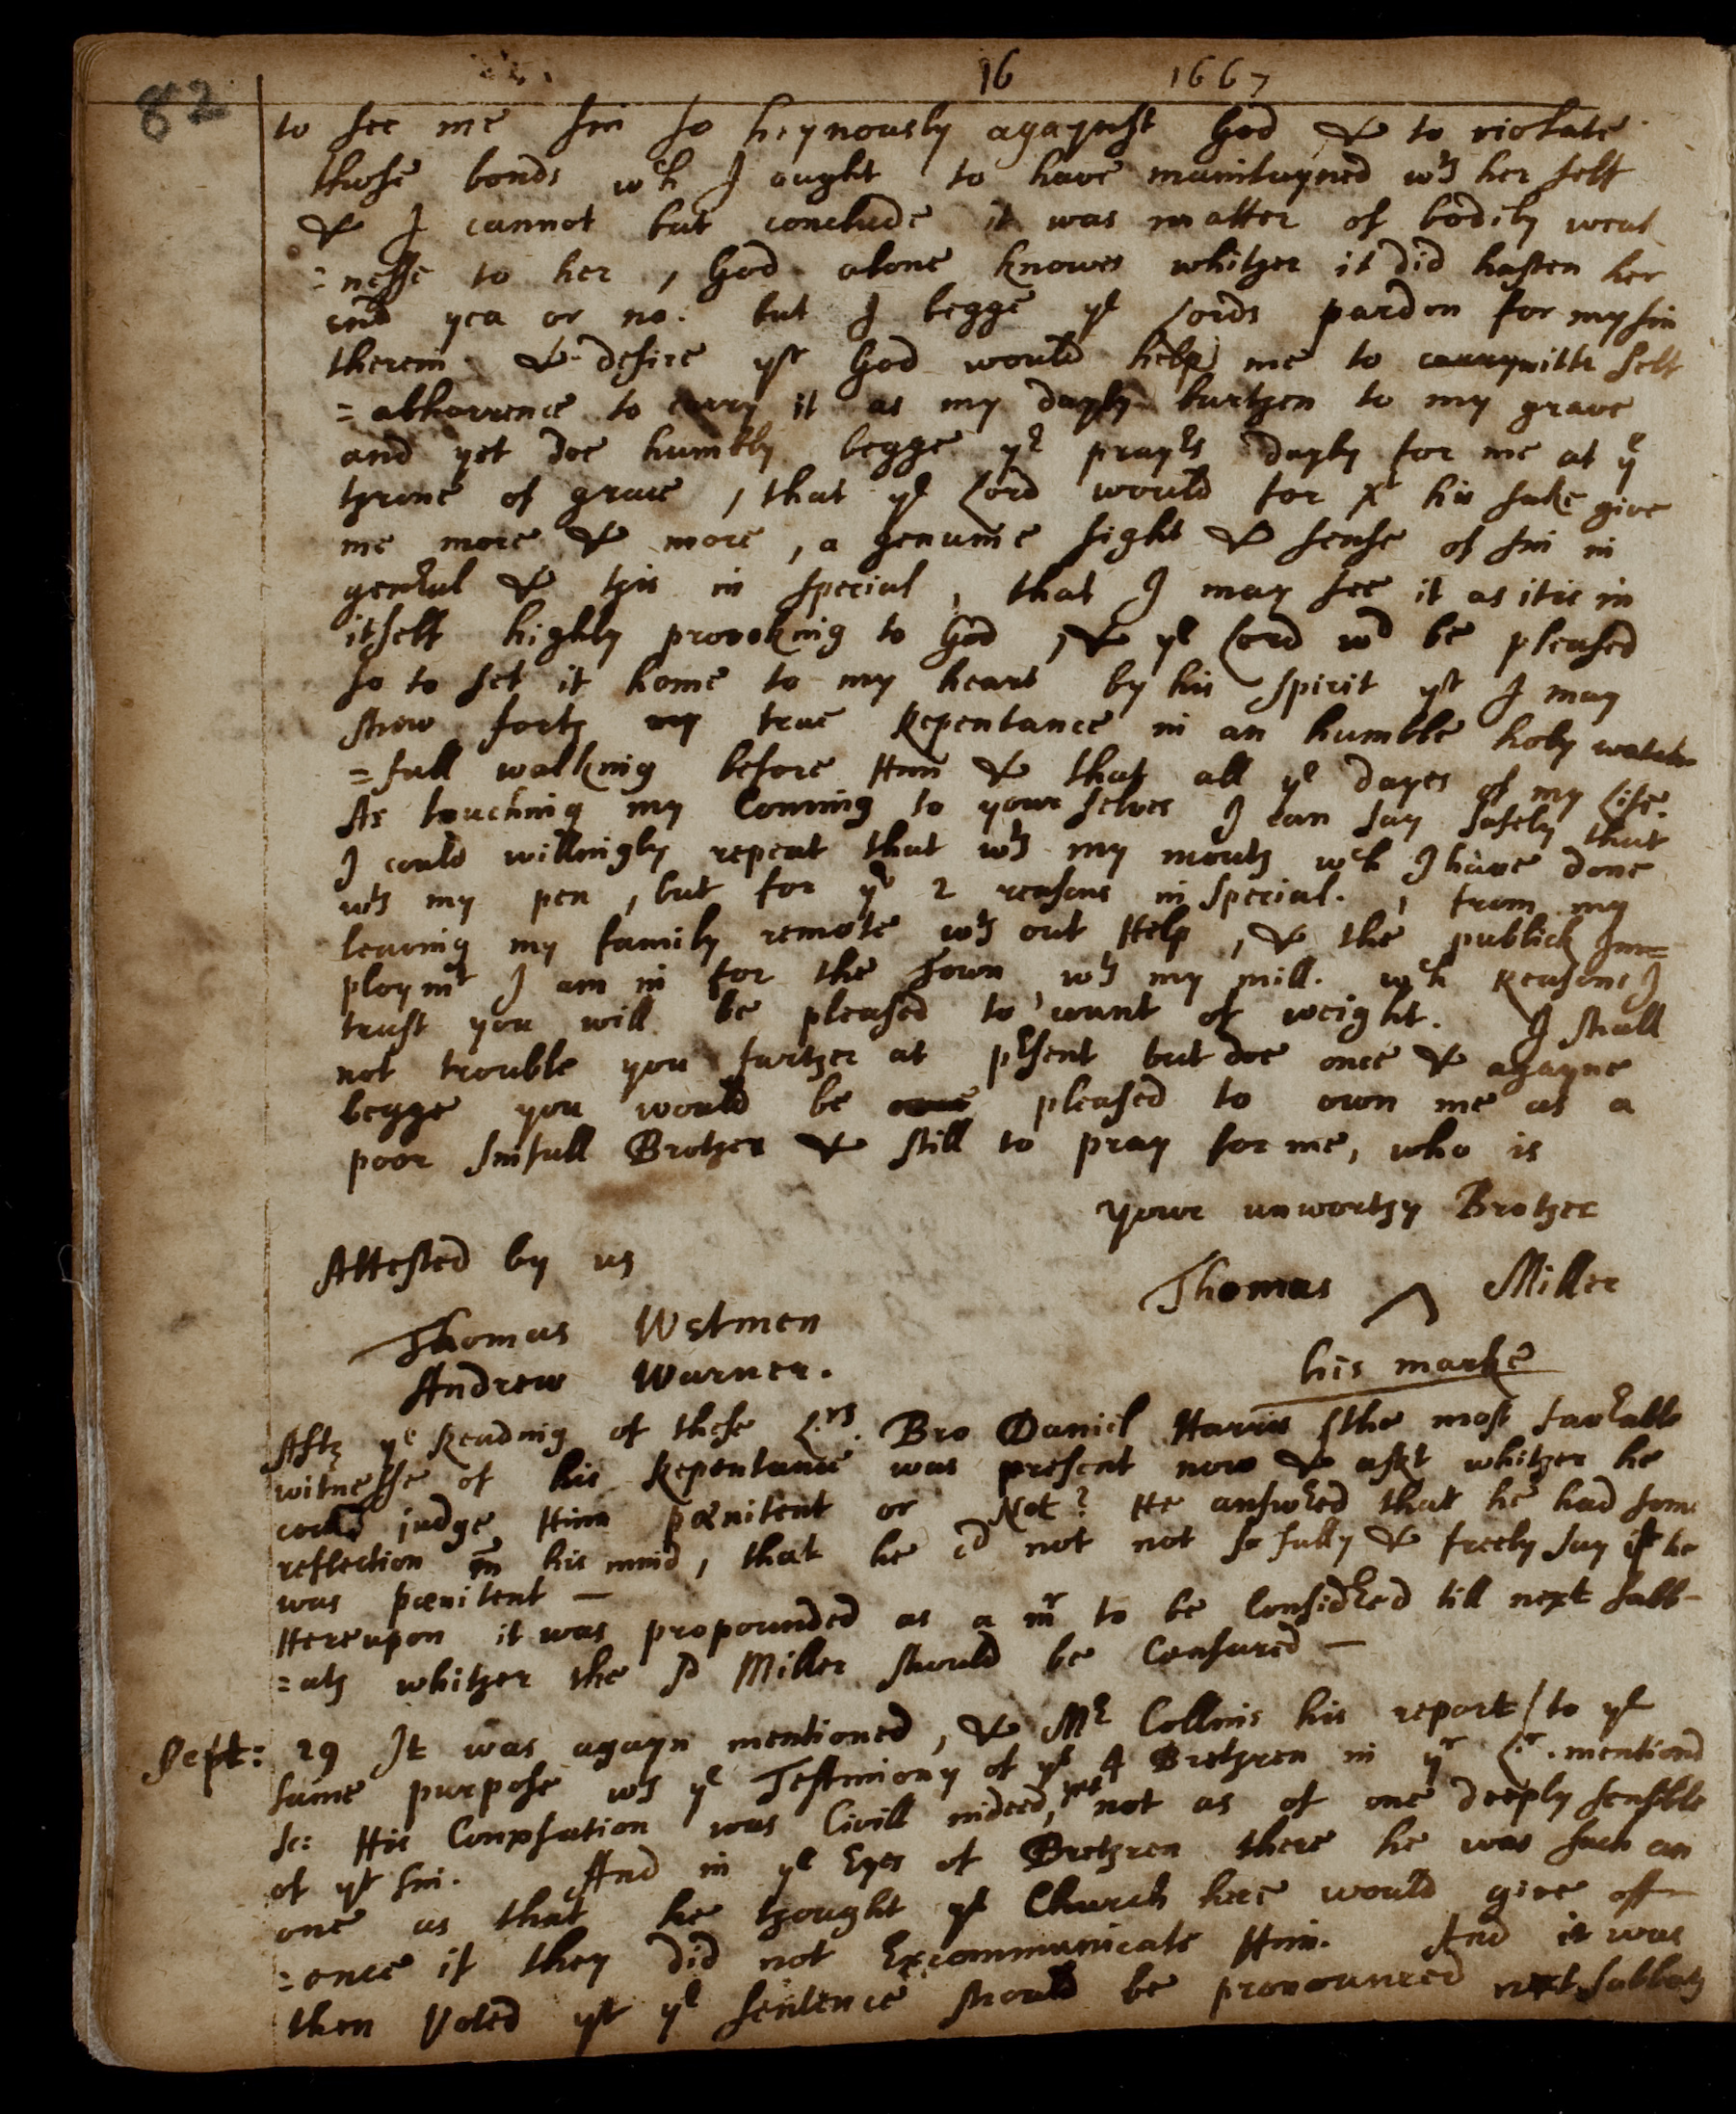 82 16 1667
to see me sin so heynously agaynst God & to violate
those bonds wch I ought to have maintayned wth her self
& I cannot but conclude it was matter of bodily weak
=nesse to her, God alone knowes whither it did hasten her
end yea or no. but I begge ye Lords pardon for my sin
therein & desire yt God would help me to carry with self
=abhorrence to carry it as my dayly burthen to my grave
and yet doe humbly begge yr prayrs dayly for me at ye
throne of grace, that ye Lord would for X his sake give
me more & more, a genuine sight & sense of sin in
genral & this in special, that I may see it as it is in
itself highly provoking to God, & ye Lord wd be pleased
so to set it home to my heart by his spirit yt I may
shew forth my true Repentance in an humble holy watch
=full walking before Him & that all ye dayes of my Life.
As touching my Coming to your selves I can say safely that
I could willingly repeat that wth my mouth wch I have done
wth my pen, but for ye 2 reasons in special. , from my
leaving my family remote wth out Help, & the publick Im=
ploymt I am in for the Town wth my mill. wch Reasons I
trust you will be pleased to want of weight. I shall
not trouble you further at prsent but doe once & agayne
begge you would be pleased to own me as a
poor sinfull Brother & still to pray for me, who is
your unworthy Brother
Attested by us
Thomas Miller
Thomas Wetmen
his marke
Andrew Warner.
Aftr ye Reading of these Lrs. Bro Daniel Harris (the most favrable
witnesse of his Repentance was present now & askt whither he
could judge Him pœnitent or Not? He answred that he had some
reflection in his mind, that he cd not not so fully & freely say if he
was pœnitent —
Hereupon it was propounded as a mr to be Considred till next sabb-
=ath whither the sd Miller should be Censured —
Sept: 29 It was agayn mentioned, & Mr Collins his report / to ye
same purpose wth ye Testimony of ye 4 Brethren in yr Lr. mentiond
sc: His Convrsation was Civill indeed, yet not as of one deeply sensible
of yt sin. And in ye Eyes of Brethren there he was such an
one as that he thought ye Church here would give off-
=ence if they did not Excommunicate Him. And it was
then Voted yt ye sentence should be pronounced next sabbath